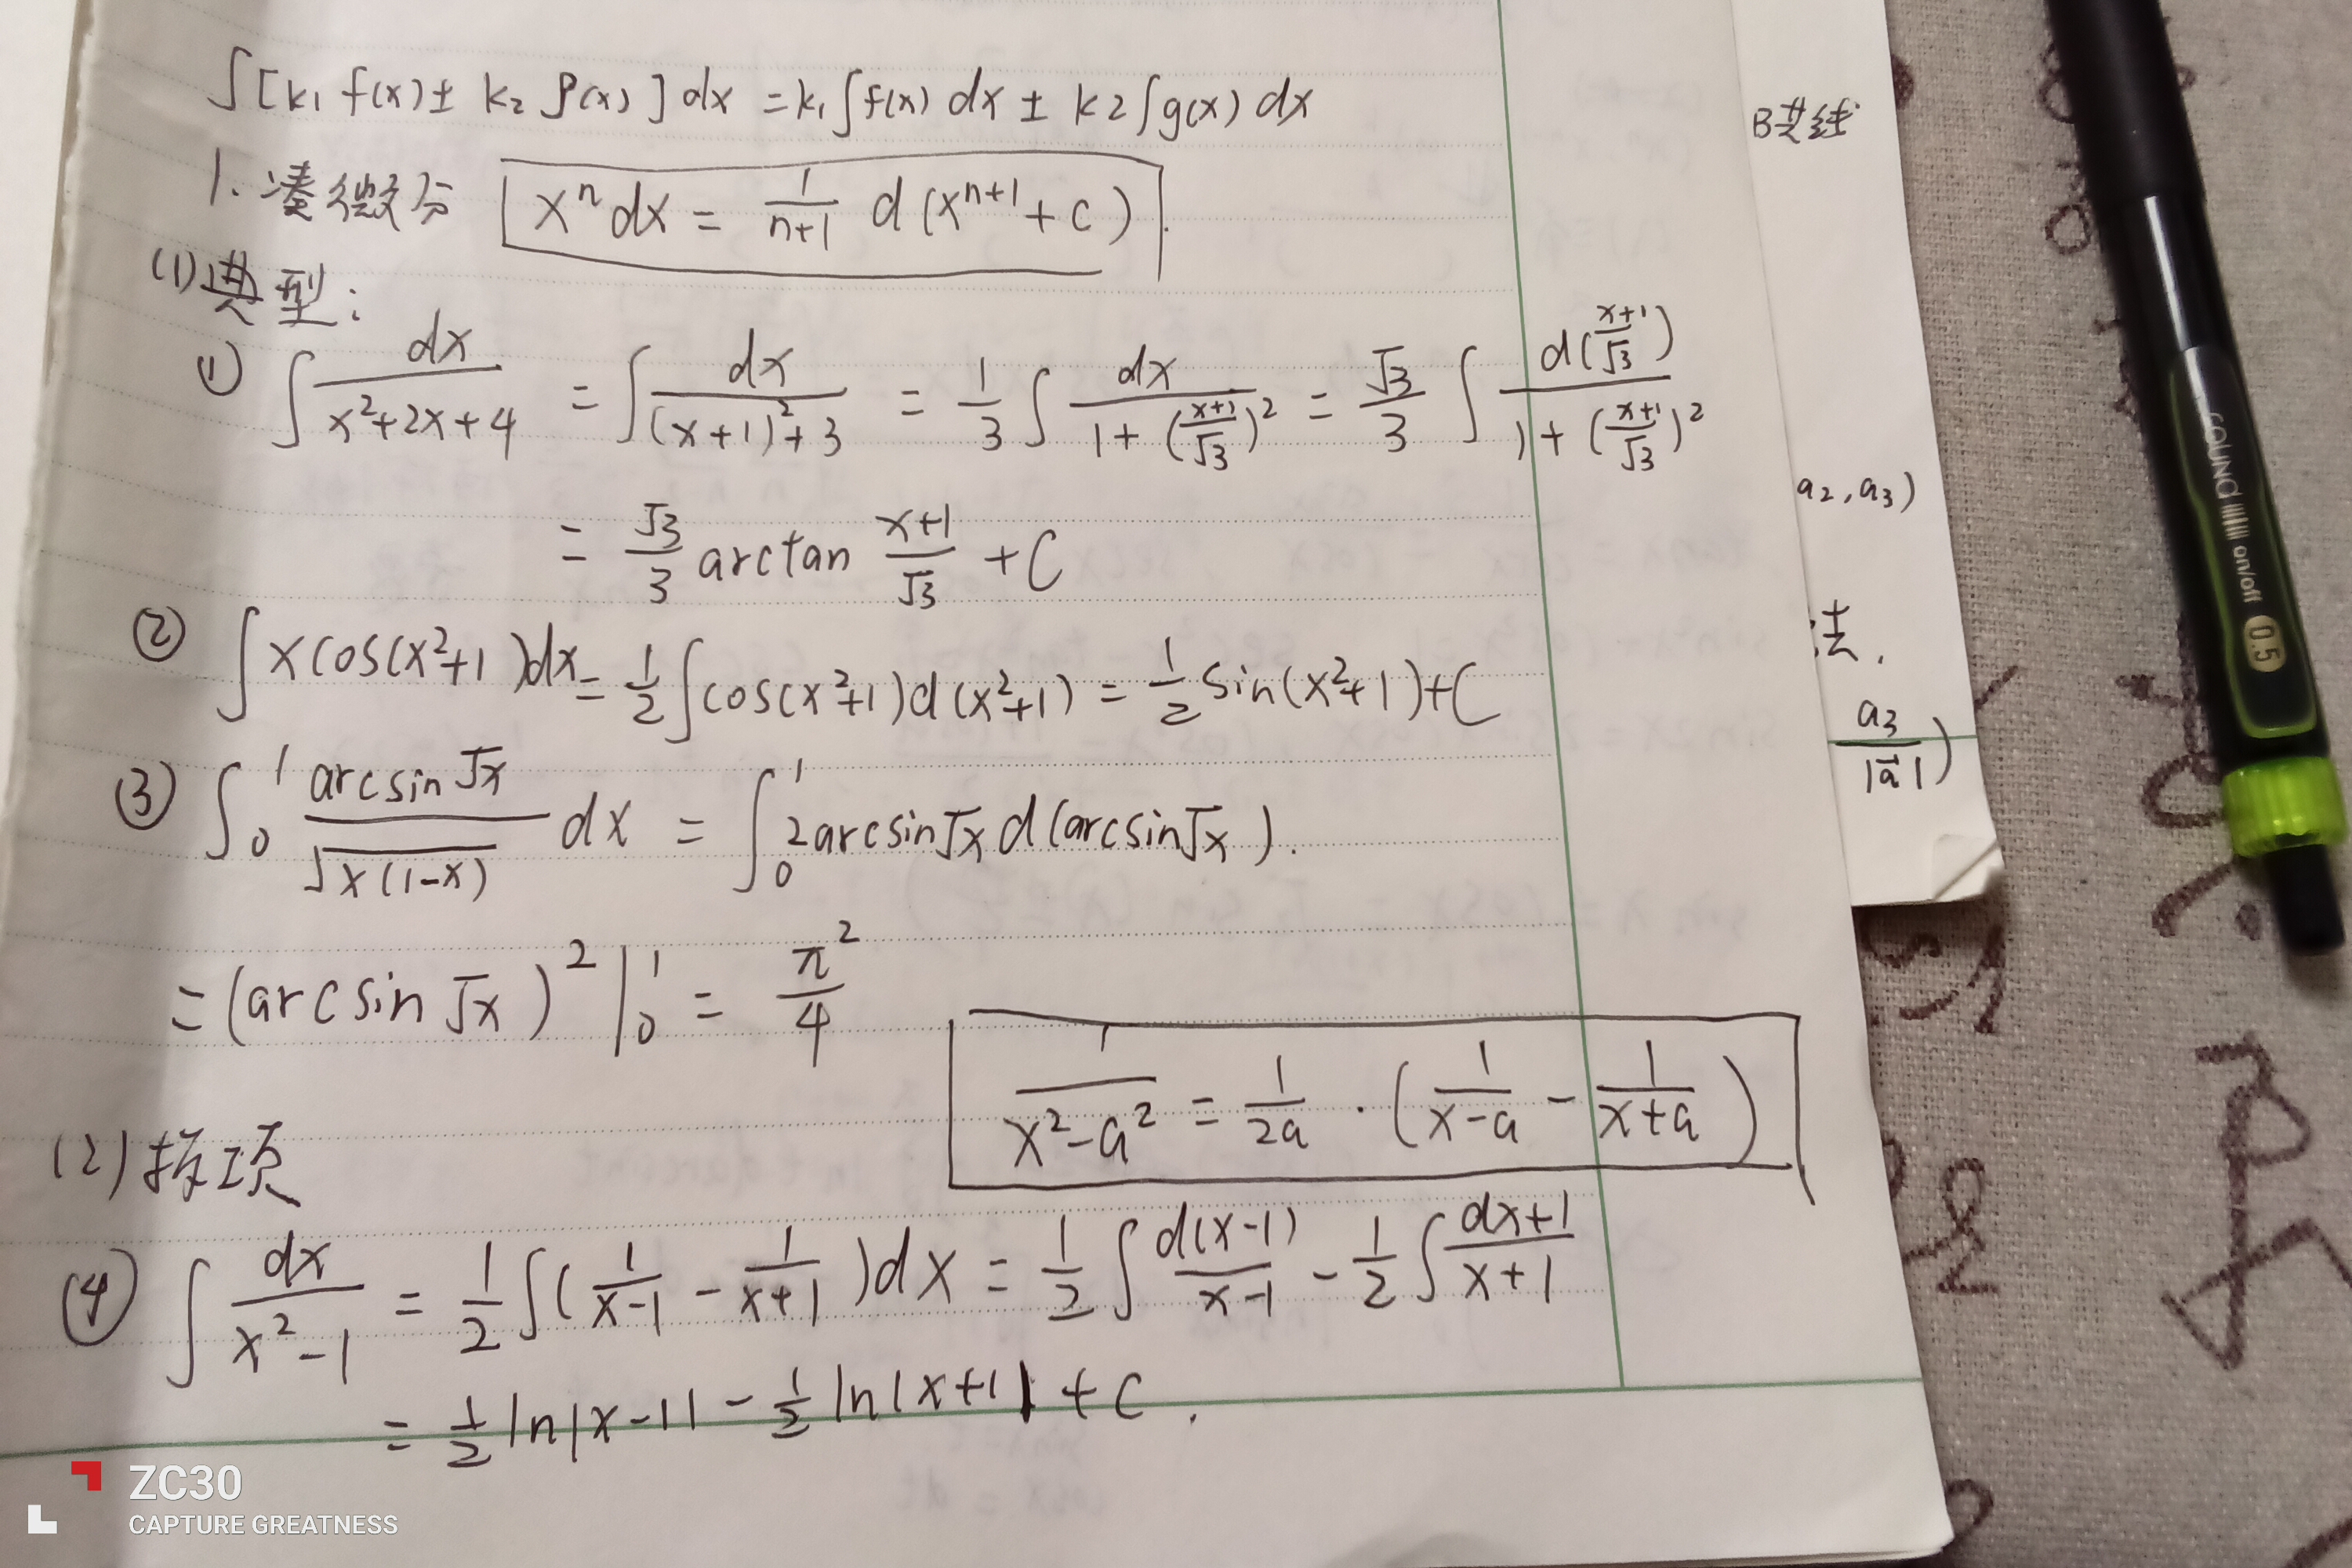 ∫[k₁ f(x) ± k₂ g(x)] dx = k₁∫f(x) dx ± k₂∫g(x) dx
1. 凑微分 xⁿdx = \frac{1}{n+1} d(xⁿ⁺¹+C)
(1) 典型:
① ∫\frac{dx}{x²+2x+4} = ∫\frac{dx}{(x+1)²+3} = \frac{1}{3}∫\frac{dx}{1+(\frac{x+1}{√3})²} = \frac{√3}{3}∫\frac{d(\frac{x+1}{√3})}{1+(\frac{x+1}{√3})²}
= \frac{√3}{3} arctan \frac{x+1}{√3} + C
② ∫xcos(x²+1)dx = \frac{1}{2}∫cos(x²+1)d(x²+1) = \frac{1}{2}sin(x²+1)+C
③ ∫₀¹ \frac{arcsin√x}{√x(1-x)} dx = ∫₀¹ 2arcsin√x d(arcsin√x).
= (arcsin√x)²|₀¹ = \frac{π²}{4}
\frac{1}{x²-a²} = \frac{1}{2a}·(\frac{1}{x-a} - \frac{1}{x+a})
(2) 拆项
④ ∫\frac{dx}{x²-1} = \frac{1}{2}∫(\frac{1}{x-1} - \frac{1}{x+1})dx = \frac{1}{2}∫\frac{d(x-1)}{x-1} - \frac{1}{2}∫\frac{dx+1}{x+1}
= \frac{1}{2}ln|x-1| - \frac{1}{2}ln|x+1| + C.
B共线
a₂,a₃)
法.
\frac{a₃}{|\vec{a}|})
SOUND on/off 0.5
ZC30
CAPTURE GREATNESS